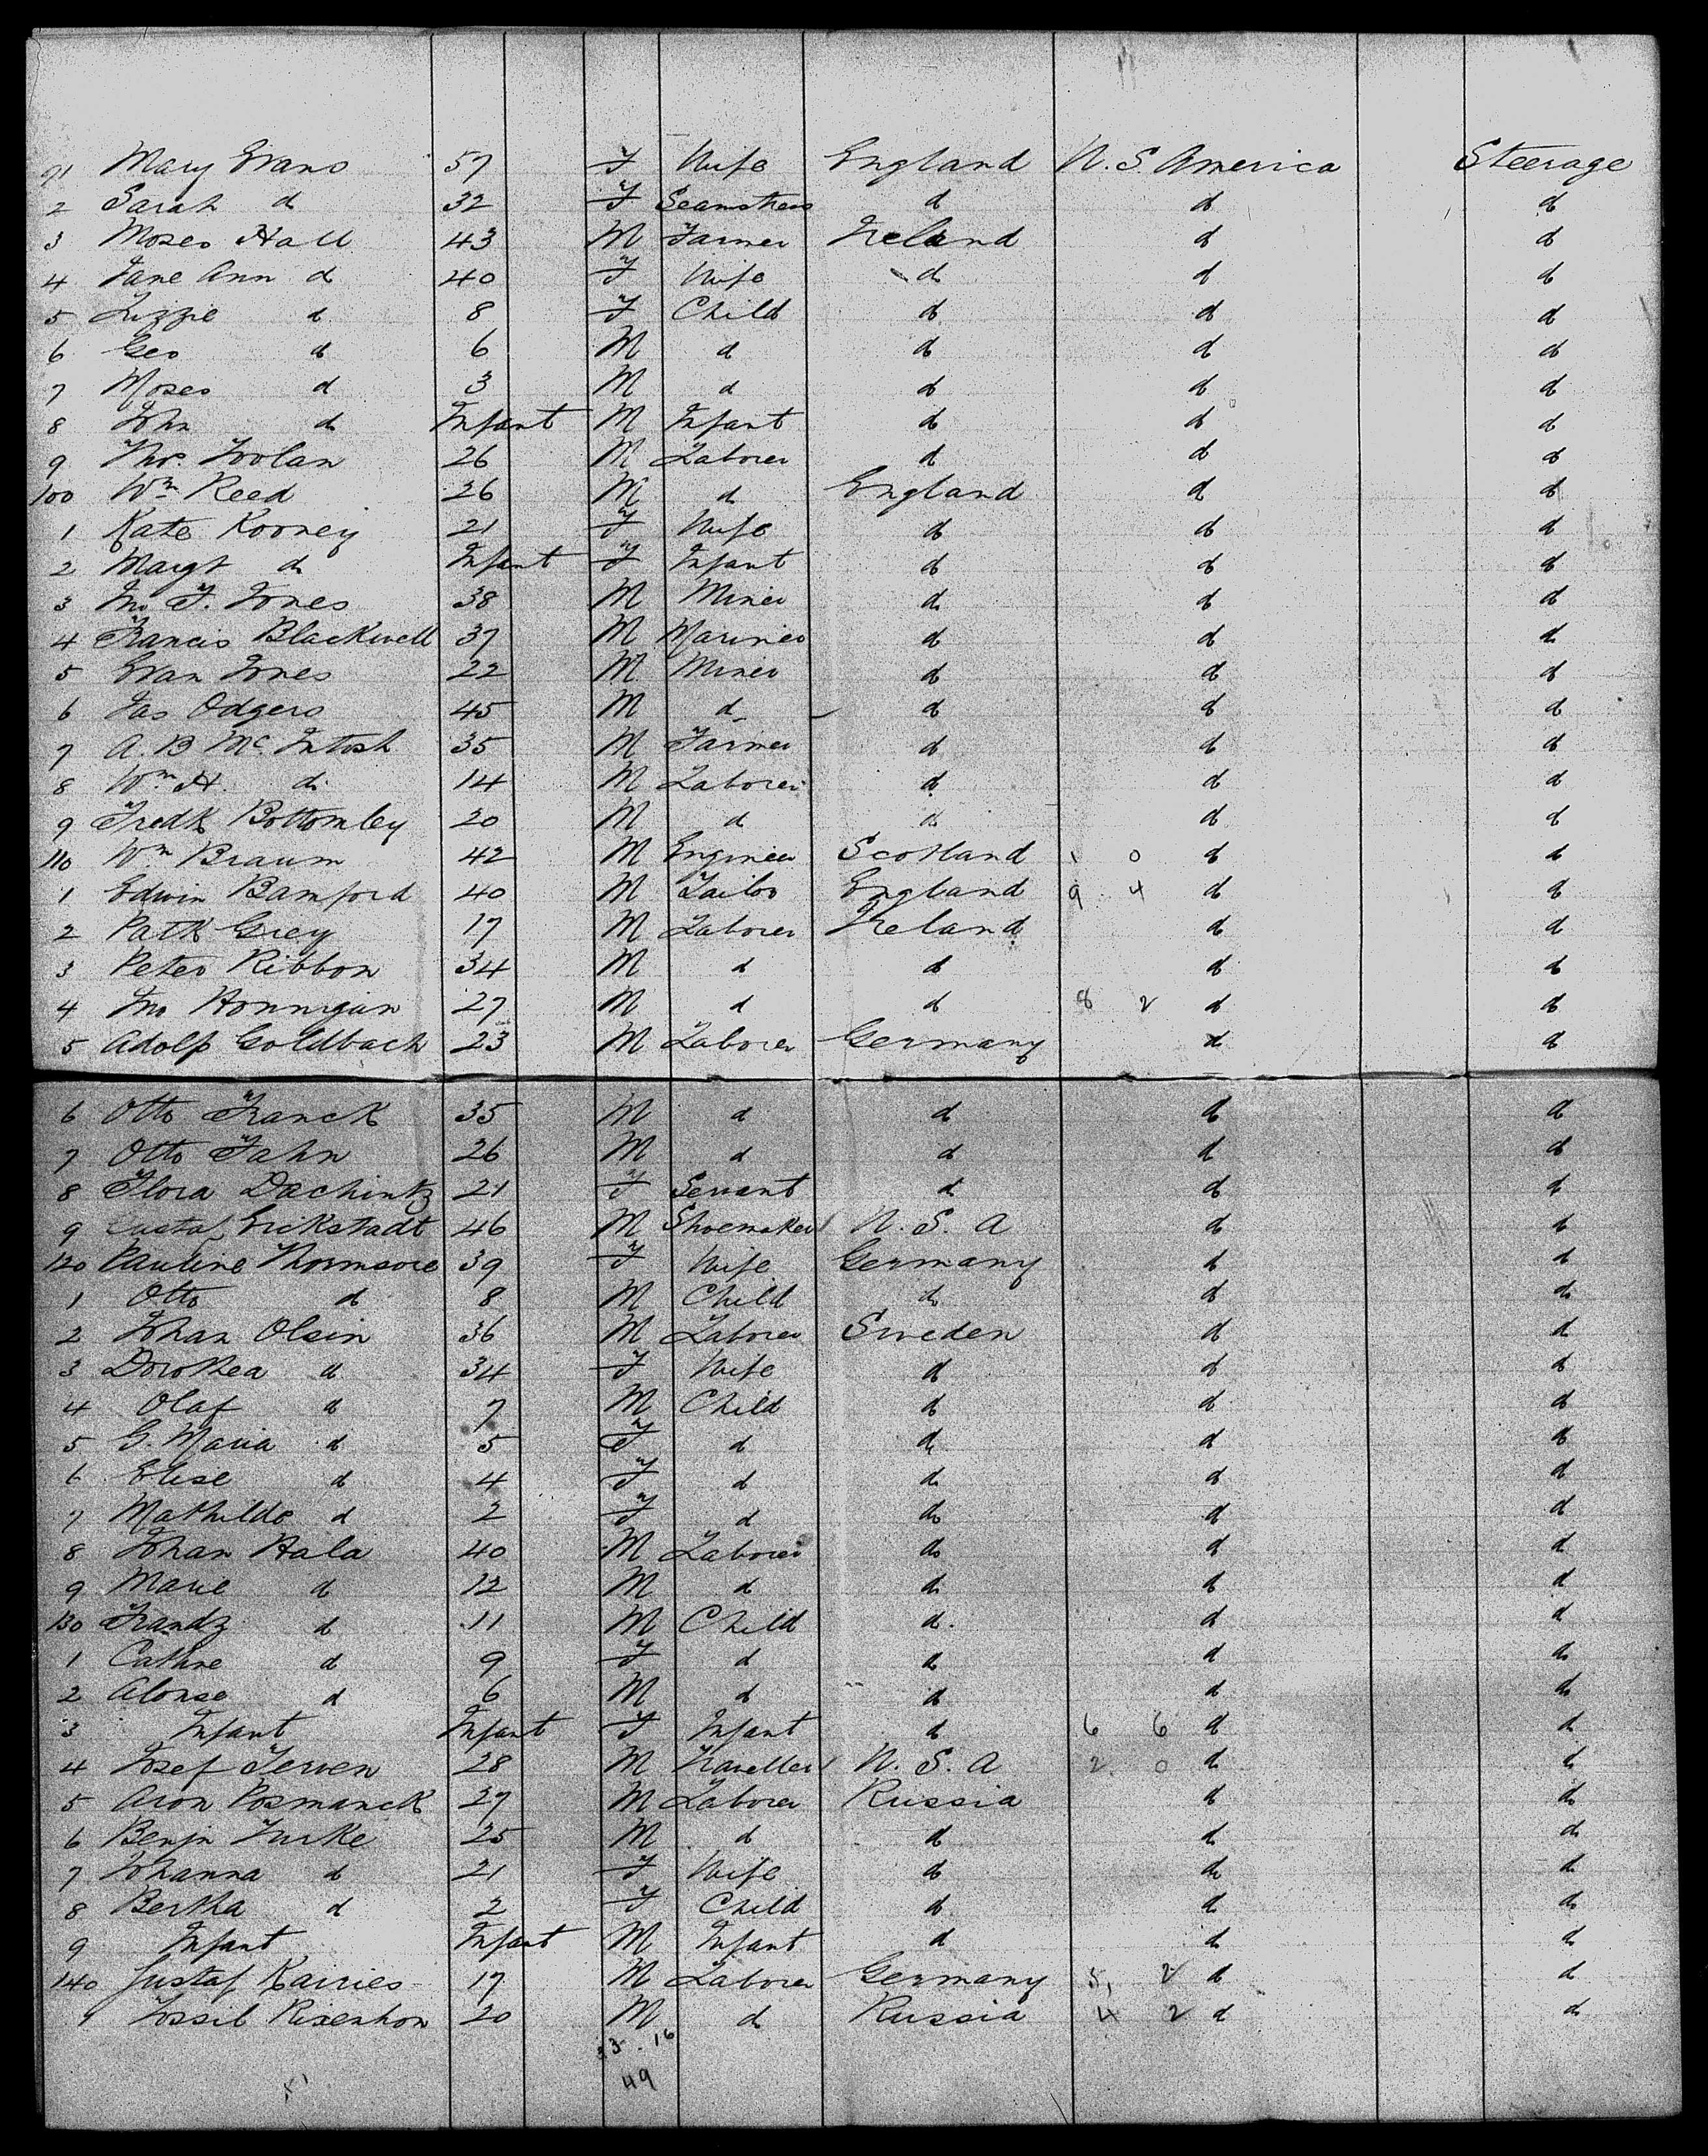 91 Mary Evans 57 F Wife England U. S. America Steerage
2 Sarah do 32 F Seamstress do do do
3 Moses Hall 43 M Farmer Ireland do do
4 Jane Ann do 40 F Wife do do do
5 Lizzie do 8 F Child do do do
6 Geo do 6 M do do do do
7 Moses do 3 M do do do do
8 John do Infant M Infant do do do
9 Thos. Toolan 26 M Laborer do do do
100 Wm Reed 26 M do England do do
1 Kate Rooney 21 F Wife do do do
2 Margt do Infant F Infant do do do
3 Jno T. Jones 38 M Miner do do do
4 Francis Blackwell 37 M Mariner do do do
5 Evan Jones 22 M Miner do do do
6 Jas Odgers 45 M do do do do
7 A. B McIntosh 35 M Farmer do do do
8 Wm H. do 14 M Laborer do do do
9 Fredk Bottomley 20 M do do do do
110 Wm Braum 42 M Engineer Scotland 1 0 do do
1 Edwin Bamford 40 M Tailor England 9 4 do do
2 Patk Grey 17 M Laborer Ireland do do
3 Peter Ribbon 34 M do do do do
4 Jno Honnigan 27 M do do 8 2 do do
5 Adolf Goldbach 23 M Laborer Germany do do
6 Otto Franck 35 M do do do do
7 Otto Jahn 26 M do do do do
8 Flora Dachintz 21 F Servant do do do
9 Gustaf Erickstadt 46 M Shoemaker U. S. A do do
120 Pauline 39 F Wife Germany do do
1 Otto do 8 M Child do do do
2 Johan Olsin 36 M Laborer Sweden do do
3 Dorothea do 34 F Wife do do do
4 Olaf do 7 M Child do do do
5 G. Maria do 5 F do do do do
6 Elise do 4 F do do do do
7 Mathilde do 2 F do do do do
8 Johan Hala 40 M Laborer do do do
9 Marie do 12 M do do do do
130 Frandz do 11 M Child do do do
1 Cathne do 9 F do do do do
2 Alonse do 6 M do do do do
3 Infant Infant F Infant do 6 6 do do
4 Josef Jerven 28 M Traveller U. S. A 2 0 do do
5 Aron Posmanck 27 M Laborer Russia do do
6 Benjn Turke 25 M do do do do
7 Johanna do 21 F Wife do do do
8 Bertha do 2 F Child do do do
9 Infant Infant M Infant do do do
140 Gustaf Kairies 17 M Laborer Germany 5 2 do do
1 Jossil Rixenhon 20 M do Russia 4 2 do do
33 . 16
49